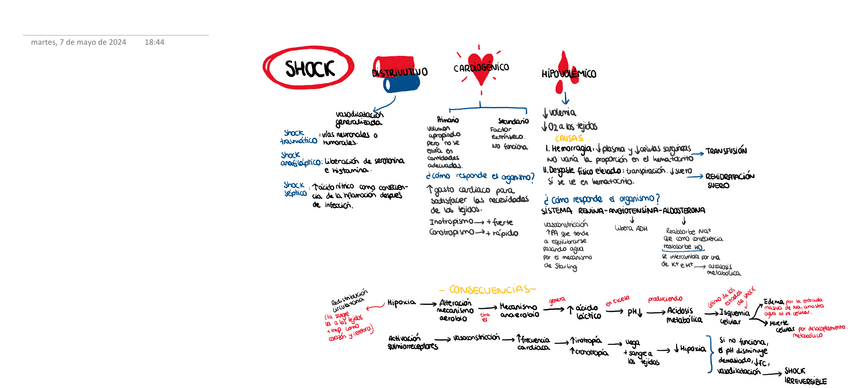 martes, 7 de mayo de 2024 18:44
SHOCK
DISTRIVUTIVO
CARDIOGÉNICO
HIPOVOLÉMICO
vasodilatación
generalizada
Shock
traumático: vías neuronales o
humorales.
Shock
anafiláptico: Liberación de serotonina
e histamina.
Shock
séptico: ↑ácido nítrico como consecuen-
cia de la inflamación después
de infección.
Primario
volumen
apropiado
pero no se
en
cantidades
adecuadas.
Secundario
Factor
extrínseco.
No funciona.
¿Cómo responde el organismo?
↑gasto cardíaco para
satisfacer las necesidades
de los tejidos.
Inotropismo → + fuerte
Conotropismo → + rápido
↓volemia
↓O2 a los tejidos
CAUSAS
I. Hemorragia: ↓plasma y ↓células sanguíneas → TRANSFUSIÓN
No varía la proporción en el hematocrito
II. Desgaste físico elevado: transpiración. ↓suero → REHIDRATACIÓN
SUERO
Sí se ve en hematocrito.
¿Cómo responde el organismo?
SISTEMA RENINA-ANGIOTENSINA-ALDOSTERONA
vasoconstricción
↑PA que tiende
a equilibrarse
pasando agua
por el mecanismo
de Starling
Libera ADH
Reabsorbe Na+
que como consecuencia
reabsorbe H2O
se intercambia por una
de K+ e H+ → alcalosis
metabólica
- CONSECUENCIAS -
Redistribución
circulatoria
(la sangre
va a los tejidos
+ imp. como
corazón y cerebro)
Hipoxia → Alteración
mecanismo
aerobio → Mecanismo
anaerobio
genera
↑ ácido
láctico
en exceso
pH↓
produciendo
Acidosis
metabólica
Isquemia
celular
Edema por la entrada
masiva de Na+ arrastra
agua al int. celular.
Muerte
celular
Activación
quimiorreceptores → vasoconstricción → ↑frecuencia
cardíaca → ↑inotropía
↑cronotropía → llega
+ sangre a
los tejidos → ↓Hipoxia
Si no funciona,
el pH disminuye
demasiado, ↓FC,
vasodilatación → SHOCK
IRREVERSIBLE